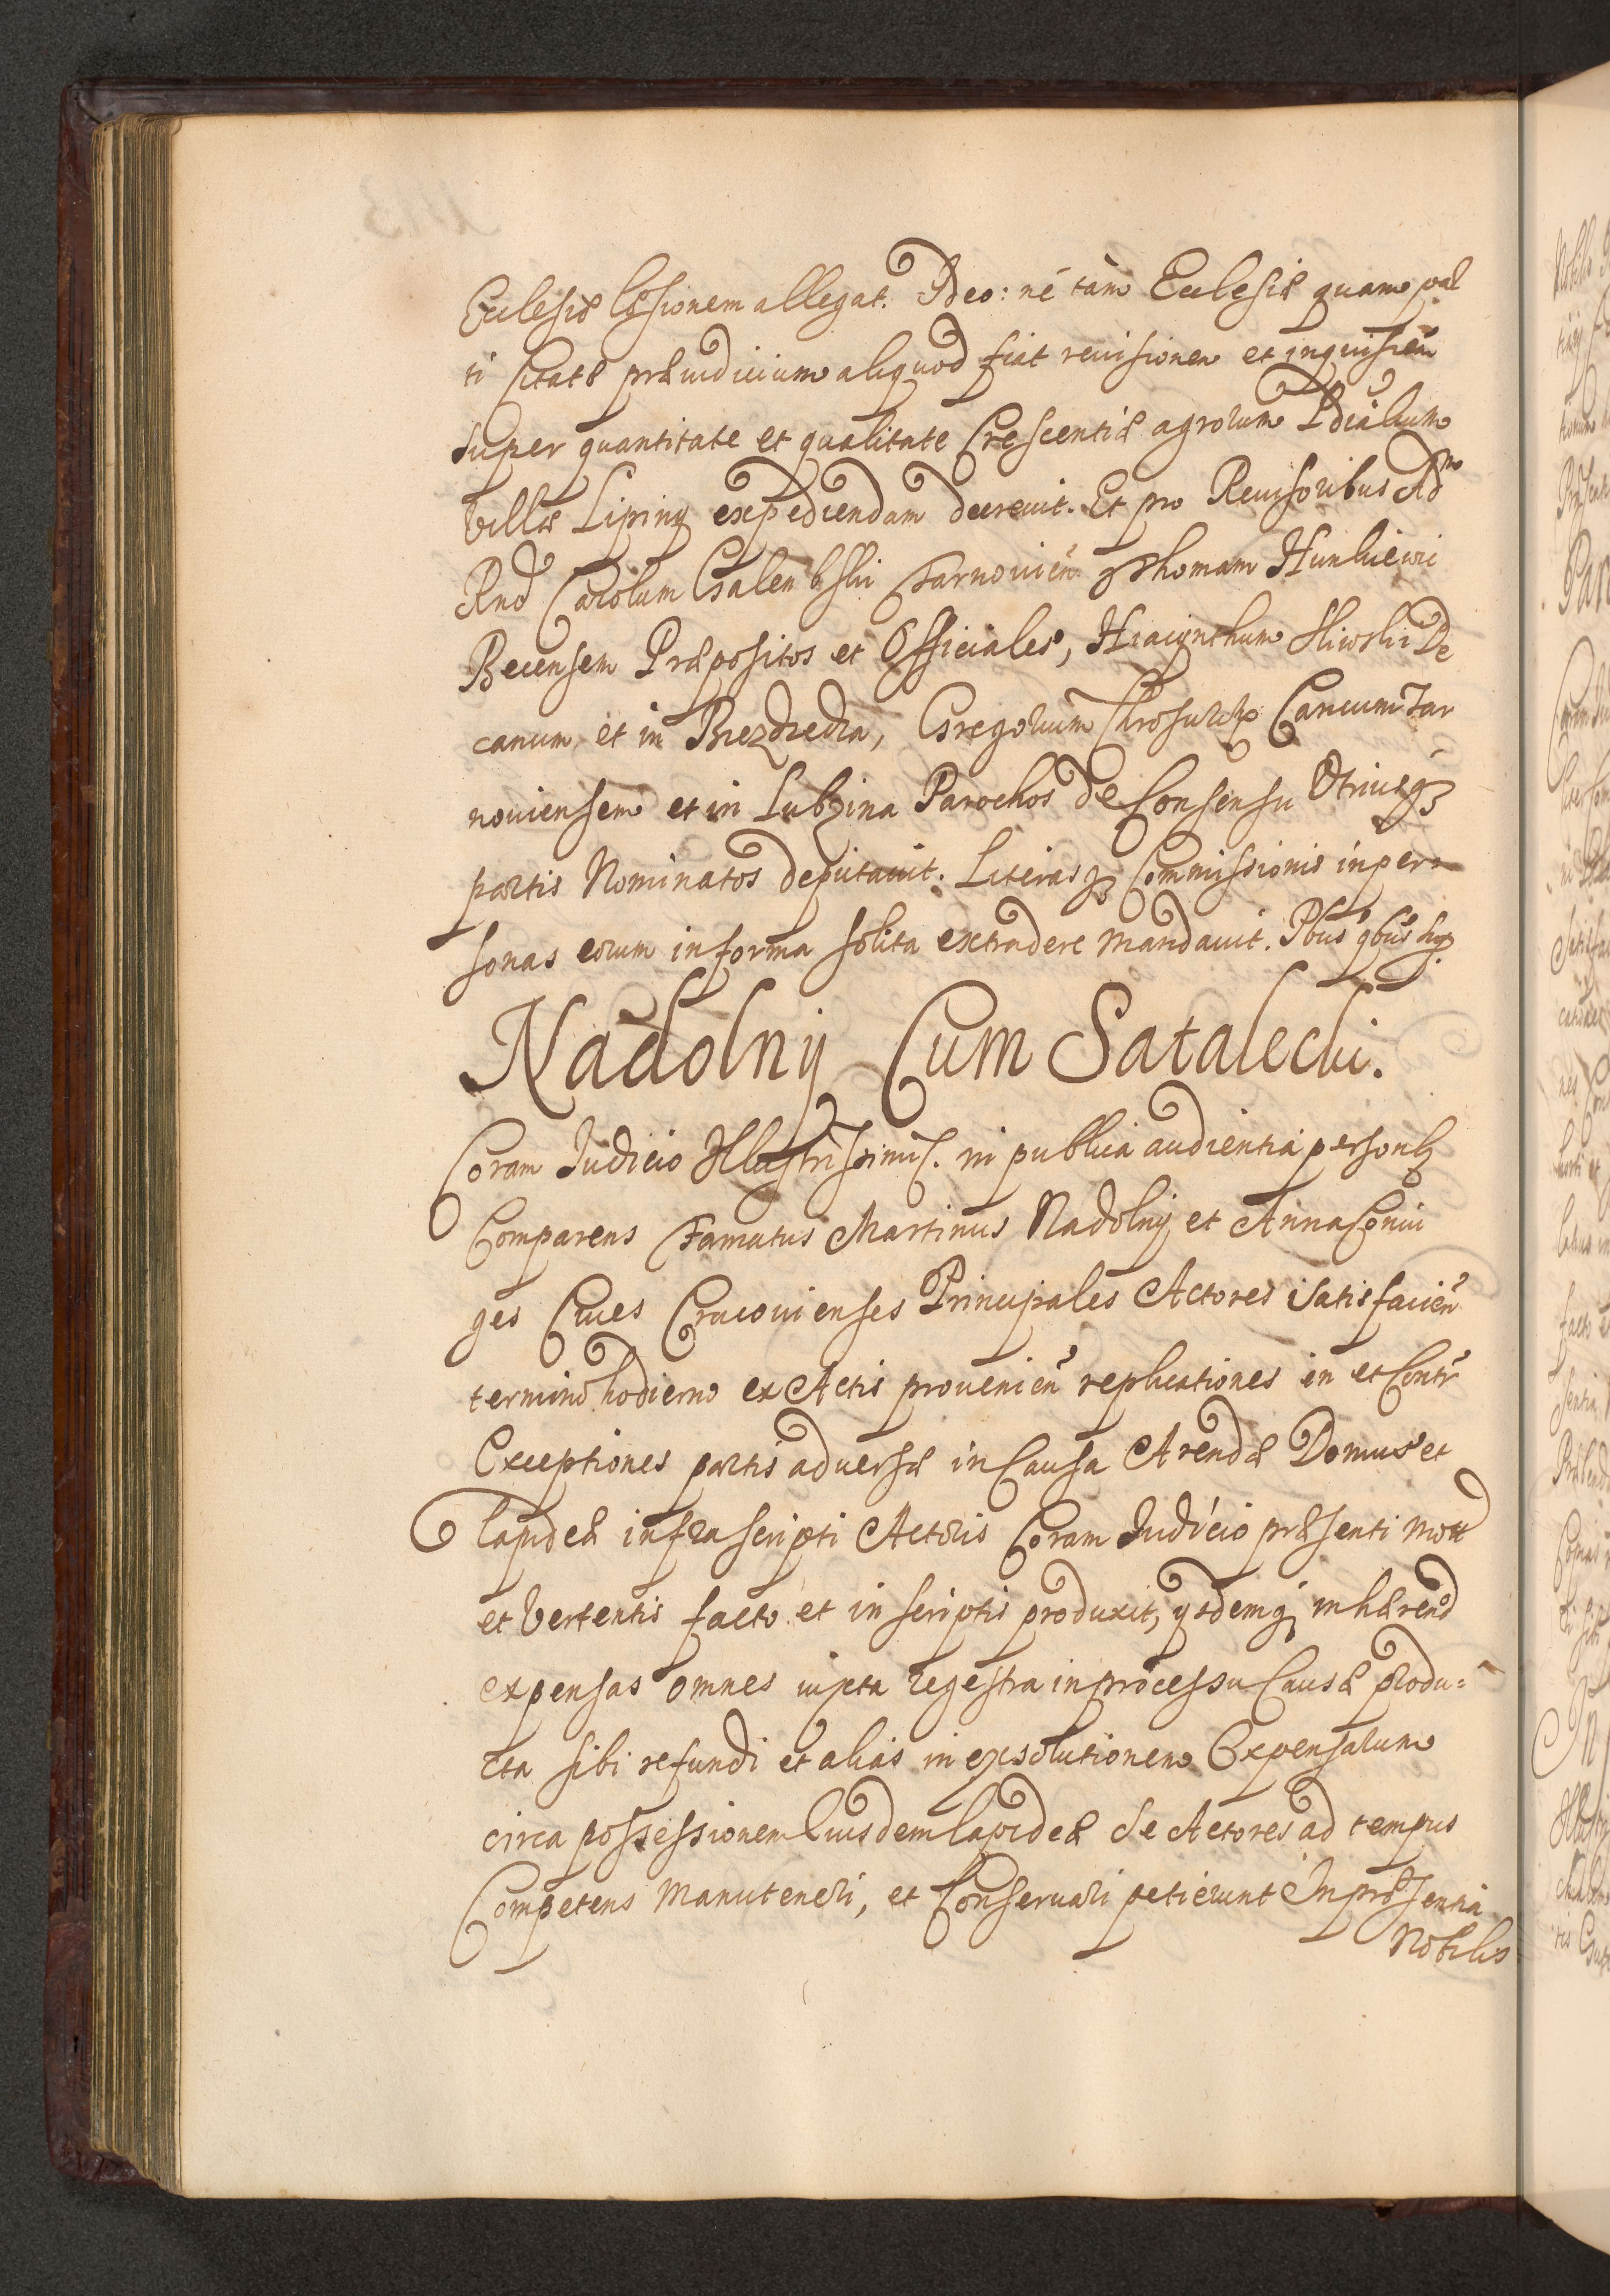 Ecclesiæ læsionem allegat. Ideo: né tàm Ecclesiæ quam par
ti Citatæ præiudicium aliquod fiat reuisionem et inquisitiēm
super quantitate et qualitate Crescentiæ agrorum Prædiālium
Villæ Lipiny expediendam decreuit. Et pro Reuisoribus Adm
Rnd Carolum Galembski Tarnouień Thomam Hunkiewic
Becensem Præpositos et Officiales, Hiacynthum Sliwski De
canum et in Biezdziedza, Gregorium Canum Tar
nouiensem et in Lubzina Parochos de Consensu Vtriusq3
partis Nominatos deputauit. Literasq3 Commissionis in per=
sonas eorum in forma solita extradere mandauit. Pbus qbus
Nadolny Cum Satalecki.
Coram Judicio Illustrissimi. in publica audientia personlr
Comparens Famatus Martinus Nadolny et Anna Coniu
ges Ciues Cracouienses Principales Actores satisfacień
termino hodierno ex Actis prouenień replicationes in et Contr
Exceptiones partis aduersæ in Causa Arendæ Domus et
lapideæ infrascripti Actoris Coram Judicio præsenti mott
et Vertentis facto et in scriptis produxit, ysdemq3 inhærend
expensas omnes iuxta regestra in processu Causæ produ=
cta sibi refundi et alias in exsolutionem Expensarum
circa possessionem Eiusdem lapideæ se Actores ad tempus
Competens manuteneri, et Conseruari petierunt In præsentia
Nobilis